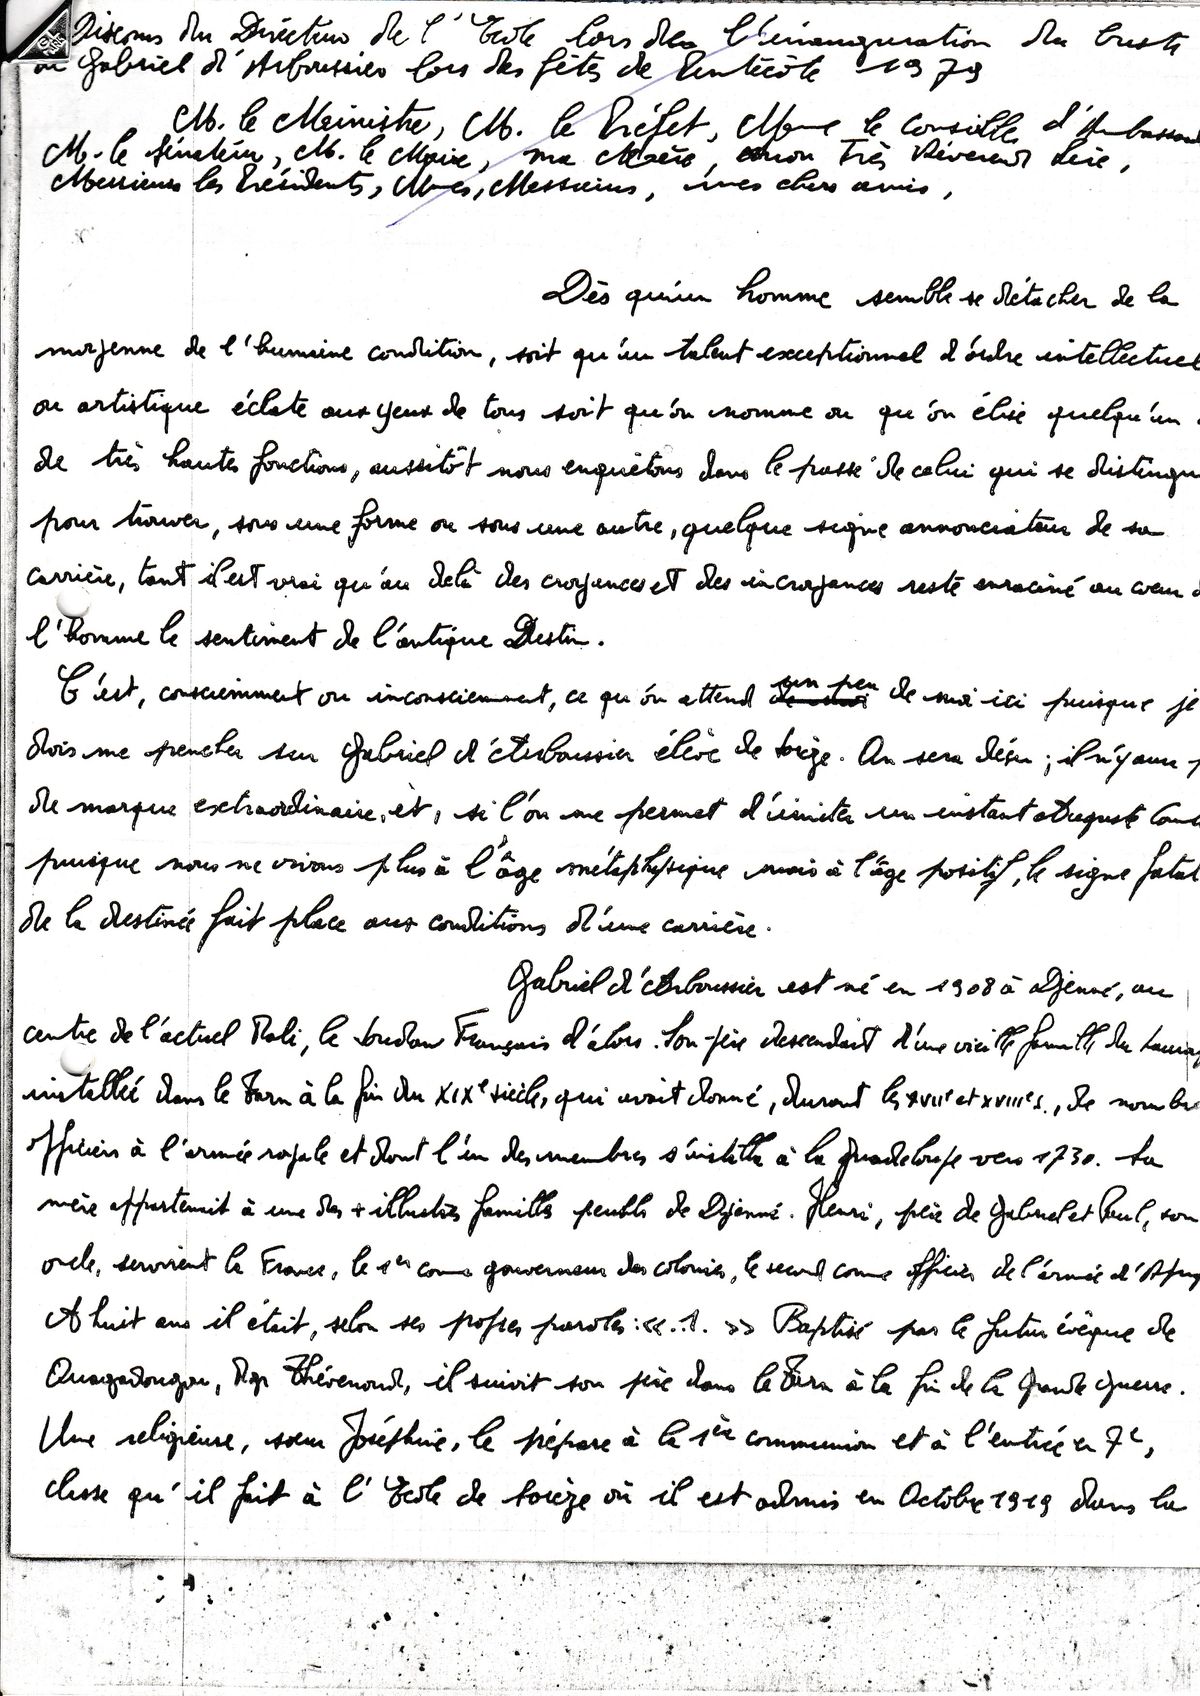 Discours du Directeur de l'Ecole lors de l'inauguration du buste
de Gabriel d'Arboussier lors des fêtes de Pentecôte 1979
M. le Ministre, M. le Préfet, Mme le conseille d'Ambassad
M. le Sénateur, M. le Maire, ma Mère, mon Très Révérend Père,
Messieurs les Présidents, Mmes, Messieurs, mes chers amis,
Dès qu'un homme semble se détacher de la
moyenne de l'humaine condition, soit qu'un talent exceptionnel d'ordre intellectuel
ou artistique éclate aux yeux de tous soit qu'on nomme ou qu'on élise quelqu'un
de très hautes fonctions, aussitôt nous enquêtons dans le passé de celui qui se distingu
pour trouver, sous une forme ou sous une autre, quelque signe annonciateur de sa
carrière, tant il est vrai qu'au delà des croyances et des incroyances reste enraciné au coeur d
l'homme le sentiment de l'antique Destin.
C'est, consciemment ou inconsciemment, ce qu'on attend un peu de moi ici puisque je
dois me pencher sur Gabriel d'Arboussier élève de Sorèze. On sera déçu ; il n'y aura p
de marque extraordinaire, et, si l'on me permet d'imiter un instant Auguste Com
puisque nous ne vivons plus à l'âge métaphysique mais à l'âge positif, le signe fatal
de la destinée fait place aux conditions d'une carrière.
Gabriel d'Arboussier est né en 1908 à Djenné, au
centre de l'actuel Mali, le Soudan Français d'alors. Son père descendait d'une vieille famille du Laurag
installée dans le Tarn à la fin du XIXe siècle, qui avait donné, durant les XVIIe et XVIIIe s., de nombr
officiers à l'armée royale et dont l'un des membres s'installa à la Guadeloupe vers 1730. Sa
mère appartenait à une des + illustres familles peuhls de Djenné. Henri, père de Gabriel et Paul, son
oncle, servirent la France, le 1er comme gouverneur des colonies, le second comme officier de l'armée d'Afriq
A huit ans il était, selon ses propres paroles : «..1.» Baptisé par le futur évêque de
Ouagadougou, Mgr Thévenoud, il suivit son père dans le Tarn à la fin de la Grande Guerre.
Une religieuse, soeur Joséphine, le prépare à la 1ère communion et à l'entrée en 7e,
classe qu'il fait à l'Ecole de Sorèze où il est admis en Octobre 1919 dans la